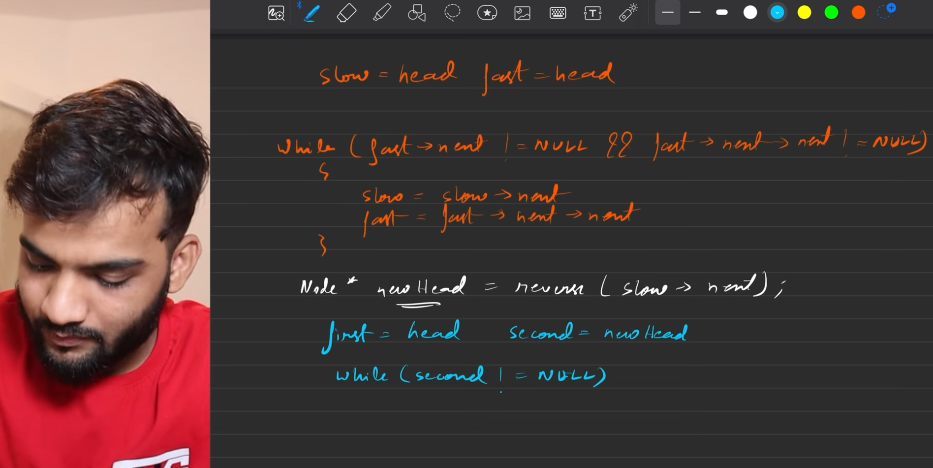 slow = head fast = head
while (fast → next != NULL && fast → next → next != NULL)
{
slow = slow → next
fast = fast → next → next
}
Node * newHead = reverse (slow → next);
first = head second = newHead
while (second != NULL)